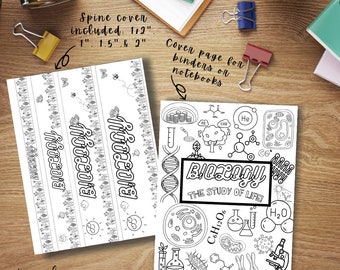 Spine cover
included, 1/2"
1" 1.5" & 2"
Cover page for
binders or
notebooks
BIOLOGY
BIOLOGY
BIOLOGY
He
BIOLOGY
THE STUDY OF LIFE!
H₂O